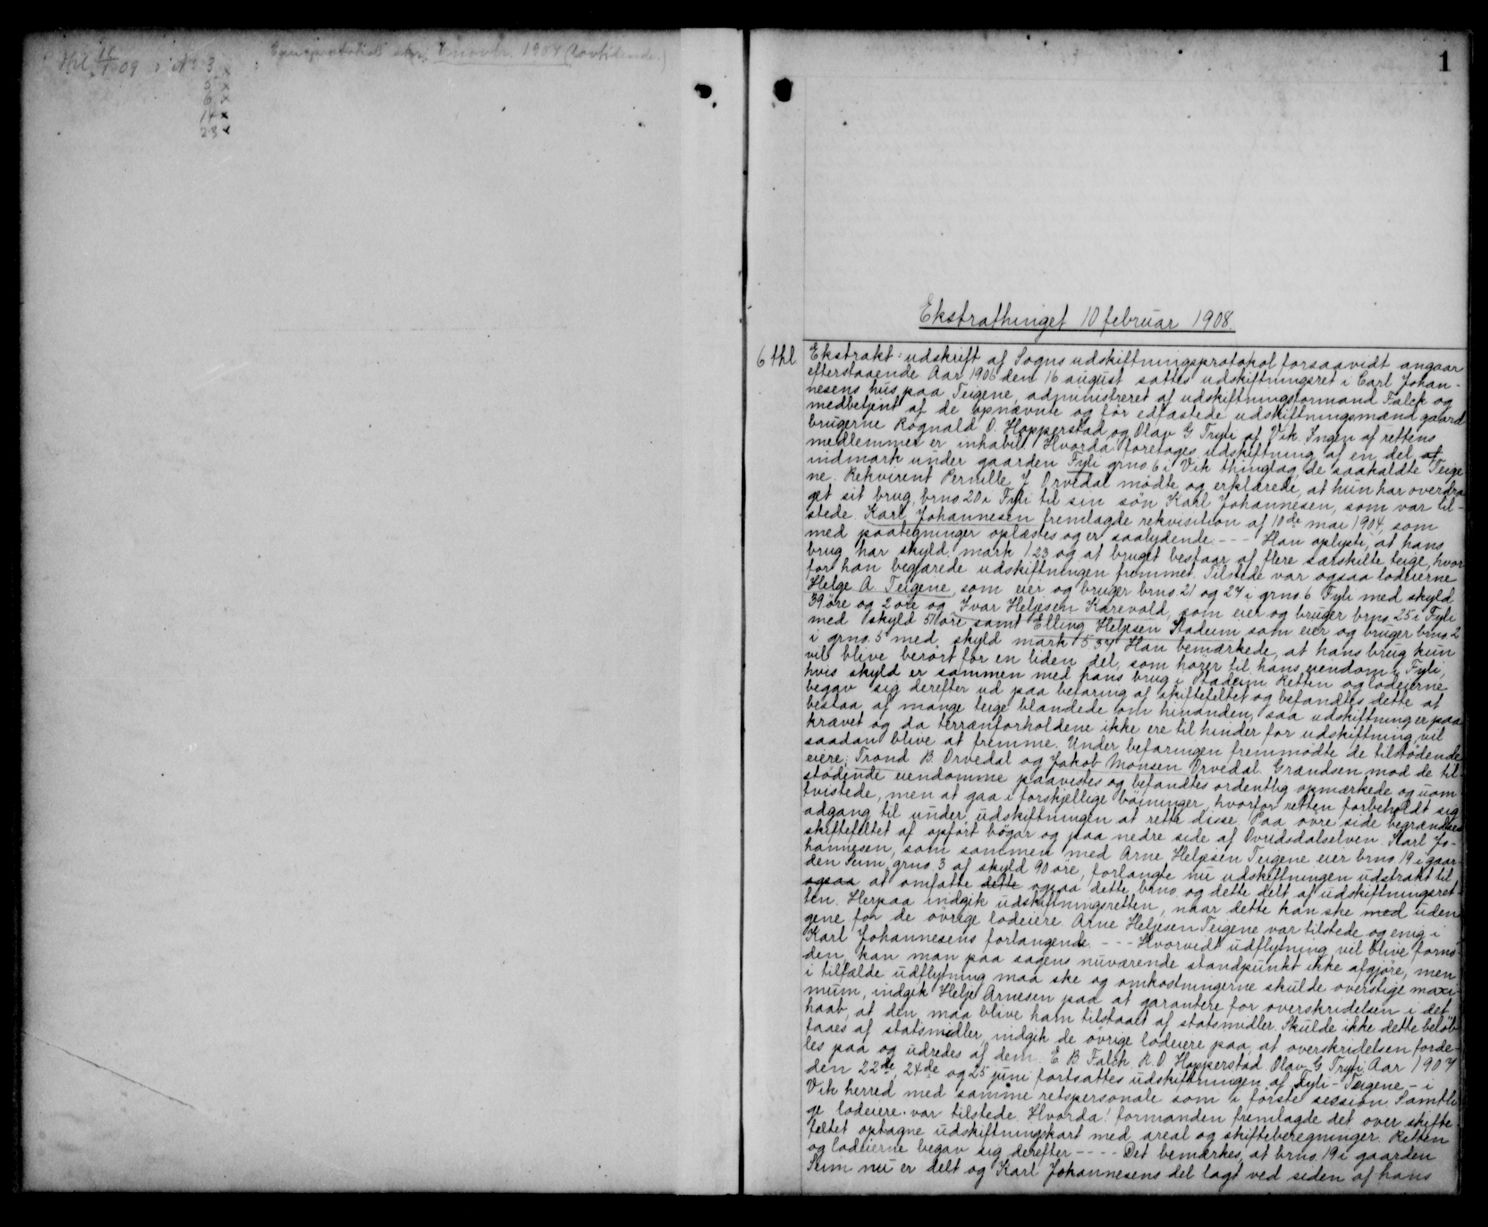 1
Ekstrathinget 10 februar 1908.
6 thl
Ekstrakt-udskrift af Sogns udskiftningsprotokol forsaavidt angaar
efterstaaende Aar 1906 den 16 august sattes udskiftningsret i Carl Johan-
nesens hus paa Teigene, administreret af udskiftningsformand Falck og
medbetjent af de opnævnte og før edfæstede udskiftningsmænd gaard
brugerne Rognald O. Hopperstad og Olav G Tryti af Vik. Ingen af rettens
medlemmer er inhabill Hvorda foretages udskiftning af en del af
indmark under gaarden Fyli grno 6 i Vik thinglag, de saakaldte Teige
ne. Rekvirent Pernille J Orvedal mødte og erklærede, at hun har overdra
get sit brug, brno 20 i Fyli til sin søn Karl Johannesen, som var til-
stede. Karl Johannesen fremlagde rekvisition af 10de mai 1904, som
med paategninger oplæstes og er saalydende --- Han oplyste, at hans
brug har skyld mark 1 23 og at bruget bestaar af flere særskilte teige, hvor
for han begjærede udskiftningen fremmet. Tilstede var ogsaa lodeierne
Helge A. Teigene, som eier og bruger brno 21 og 24 i grno 6 Fyli med skyld
39 øre og 2 øre og Ivar Heljesen Karevold, som eier og bruger brno 25 i Fyli
med skyld 51 øre samt Elling Heljesen Stadeim som eier og bruger brno 2
i grno 5 med skyld mark 5 37. Han bemærkede, at hans brug kun
vil blive berørt for en liden del, som hører til hans eiendom i Fyli,
hvis skyld er sammen med hans brug i Stadeim Retten og lodeierne
begav sig derefter ud paa befaring af skiftefeltet og befandtes dette at
bestaa af mange teige blandede om hinanden, saa udskiftning er paa
krævet og da terrænforholdene ikke ere til hinder for udskiftning vil
saadan blive at fremme. Under befaringen fremmødte de tilstødende
eiere: Trond B. Orvedal og Jakob Monsen Orvedal. Grændsen mod de til
stødende eiendomme paavistes og befandtes ordentlig opmærkede og uom
tvistede, men at gaa i forskjellige bøininger, hvorfor retten forbeholdt sig
adgang til under udskiftningen at rette disse. Paa øvre side begrændses
skiftefeltet af opført bøgar og paa nedre side af Ovridsdalselven. Karl Jo-
hannesen, som sammen med Arne Heljesen Teigene eier brno 19 i gaar-
den Seim, grno 3 af skyld 90 øre, forlangte nu udskiftningen udstrakt til
ogsaa at omfatte dette ogsaa dette brno og dette delt af udskiftningsret-
ten. Herpaa indgik udskiftningsretten, naar dette kan ske med uden
gene for de øvrige lodeiere. Arne Heljesen Teigene var tilstede og enig i
Karl Johannesens forlangende. --- Hvorvidt udflytning vil blive fornø-
den, kan man paa sagens nuværende standpunkt ikke afgjøre, men
i tilfælde udflytning maa ske og omkostningerne skulde overstige maxi-
mum, indgik Helje Arnesen paa at garantere for overskridelsen i det
haab, at den maa blive ham tilstaaet af statsmidler Skulde ikke dette beløb
faaes af statsmidler, indgik de øvrige lodeiere paa, at overskridelsen forde-
les paa og udredes af dem. E B Falck R. O Hopperstad Olav G Tryti. Aar 1907
den 22de, 24de og 25 juni fortsattes udskiftningen af Fyli-Teigene - i
Vik herred med samme retspersonale som i første session. Samtli
ge lodeiere var tilstede. Hvorda! formanden fremlagde det over skifte-
feltet optagne udskiftningskart med areal og skifteberegninger. Retten
og lodeierne begav sig derefter ---- Det bemærkes, at brno 19 i gaarden
Seim nu er delt og Karl Johannesens del lagt ved siden af hans